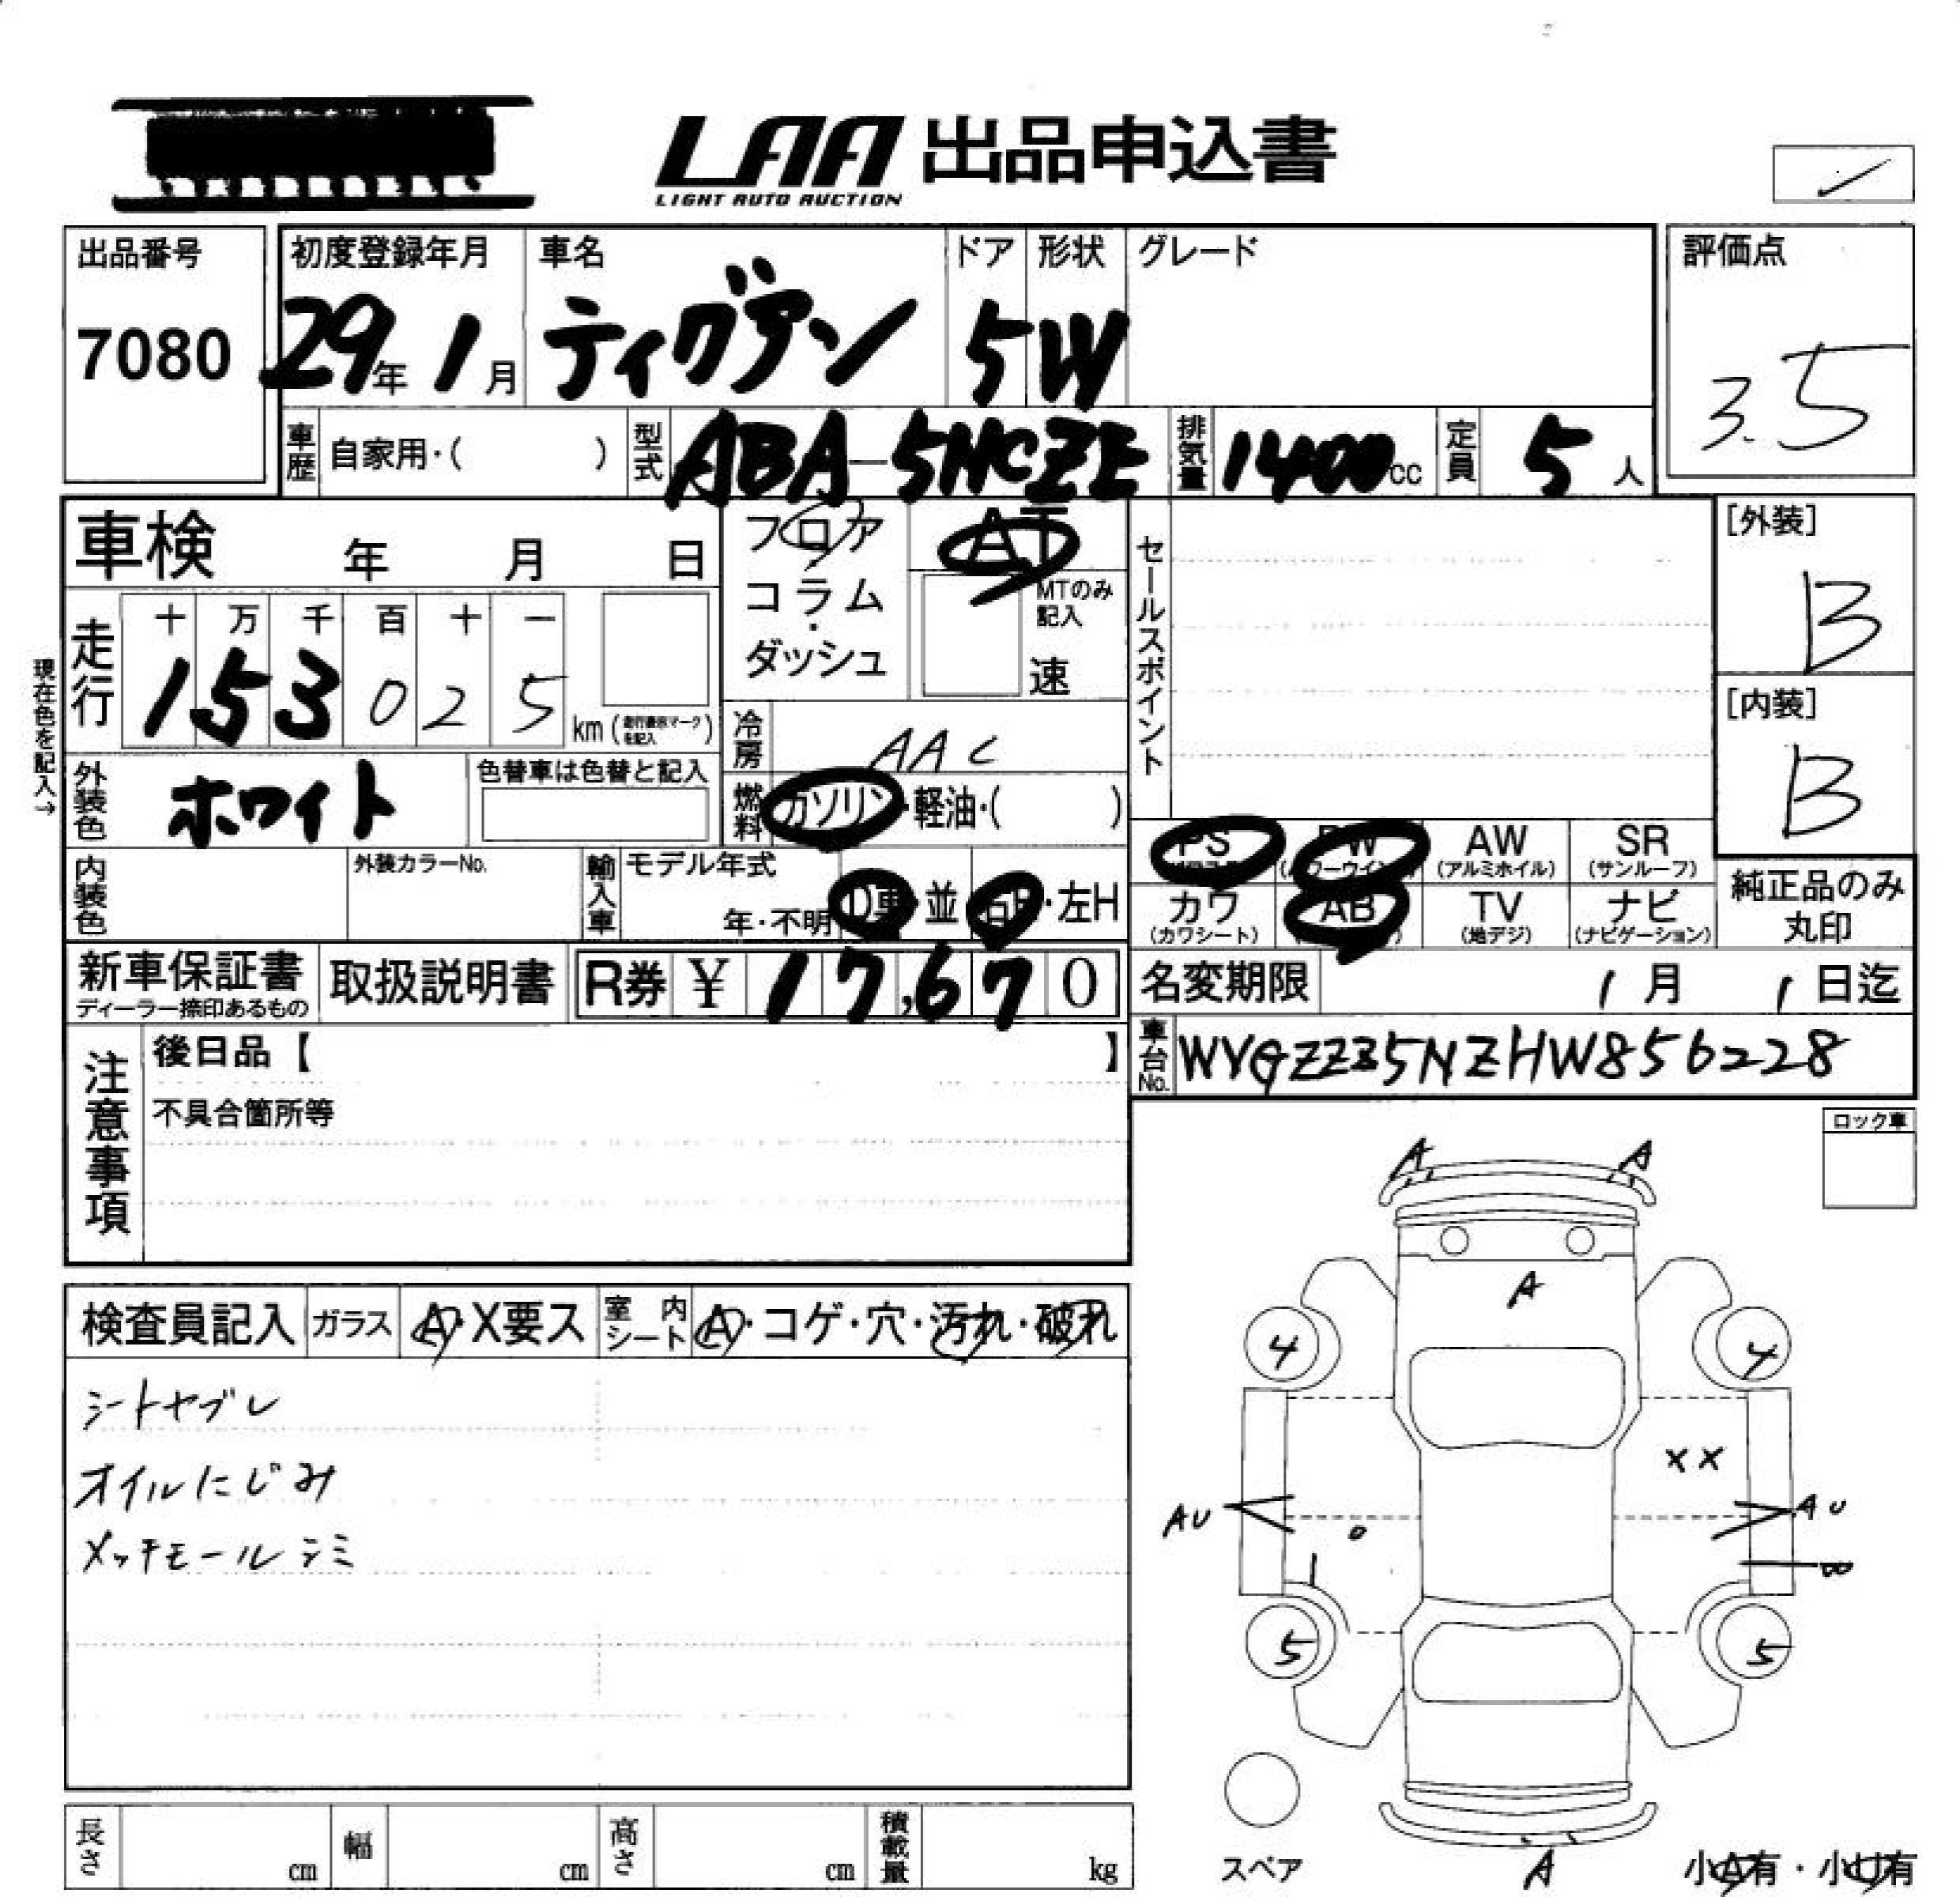 LAA 出品申込書
LIGHT AUTO AUCTION
出品番号
7080
初度登録年月
29年 1月
車名
ティグアン
ドア
5
形状
W
グレード
評価点
3.5
車歴 自家用・( )
型式 ABA-5NCZE
排気量 1400cc
定員 5人
車検 年 月 日
フロア
コラム
・
ダッシュ
AT
MTのみ
記入
速
セールスポイント
[外装]
B
[内装]
B
現在色を記入→
走行
十 万 千 百 十 一
1 5 3 0 2 5
km (走行表示マークを記入)
冷房 AAC
外装色 ホワイト
色替車は色替と記入
燃料 ガソリン・軽油・( )
内装色
外装カラーNo.
輸入車
モデル年式
年・不明
D車・並
右H・左H
PS
PW
(パワーウインドウ)
AW
(アルミホイル)
SR
(サンルーフ)
カワ
(カワシート)
AB
TV
(地デジ)
ナビ
(ナビゲーション)
純正品のみ
丸印
新車保証書
ディーラー捺印あるもの
取扱説明書
R券 ¥ 17,670
名変期限 1月 1日迄
車台No.
注意事項
後日品【 】
不具合箇所等
ロック車
検査員記入
ガラス A・X要ス
室内シート A・コゲ・穴・汚れ・破れ
シートヤブレ
オイルにじみ
メッキモールシミ
A A
A
4 4
XX
AU AU
5 5
A
スペア
小A有・小U有
長さ cm
幅 cm
高さ cm
積載量 kg